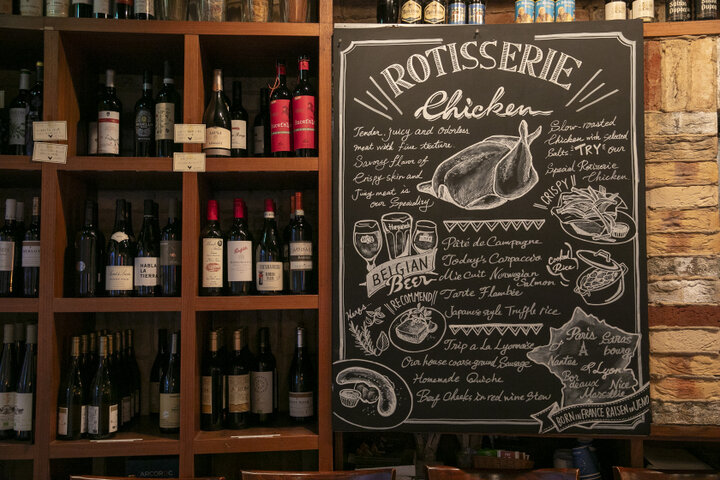 ROTISSERIE
Chicken
Tender, juicy and odorless
meat with fine texture
Savory flavor of
Crispy skin and
Juicy meat is
our Speciality
Slow-roasted
Chicken with selected
Salts! "TRY" our
Special Rotisserie
Chicken
CRISPY
BELGIAN
Beer
RECOMMEND
Pâté de Campagne
Today's Carpaccio
Mi Cuit Norwegian
Salmon
Tarte Flambée
Japanese style Truffle rice
Cooked
Rice
Trip a La Lyonnaise
Our house coarse-ground Sausage
Homemade Quiche
Beef Cheeks in red wine Stew
Paris Stras
bourg
Nantes Lyon
Bor
deaux Nice
Marseille
BORN IN FRANCE RAISED IN UENO
HABLA
LA TIERRA
ARCOROC